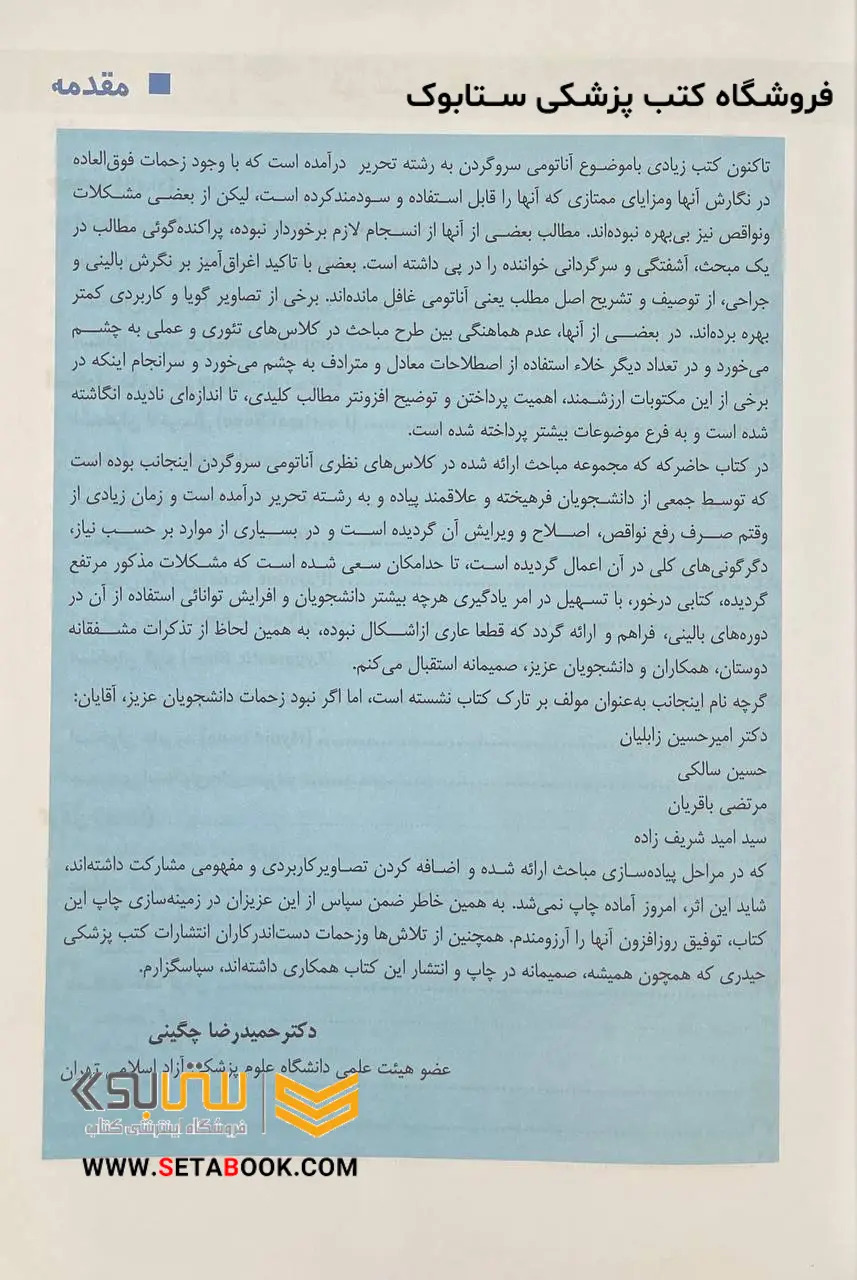 فروشگاه کتب پزشکی ستابوک
■ مقدمه
تاکنون کتب زیادی باموضوع آناتومی سروگردن به رشته تحریر درآمده است که با وجود زحمات فوق‌العاده
در نگارش آنها ومزایای ممتازی که آنها را قابل استفاده و سودمندکرده است، لیکن از بعضی مشکلات
ونواقص نیز بی‌بهره نبوده‌اند. مطالب بعضی از آنها از انسجام لازم برخوردار نبوده، پراکنده‌گوئی مطالب در
یک مبحث، آشفتگی و سرگردانی خواننده را در پی داشته است. بعضی با تاکید اغراق‌آمیز بر نگرش بالینی و
جراحی، از توصیف و تشریح اصل مطلب یعنی آناتومی غافل مانده‌اند. برخی از تصاویر گویا و کاربردی کمتر
بهره برده‌اند. در بعضی از آنها، عدم هماهنگی بین طرح مباحث در کلاس‌های تئوری و عملی به چشم
می‌خورد و در تعداد دیگر خلاء استفاده از اصطلاحات معادل و مترادف به چشم می‌خورد و سرانجام اینکه در
برخی از این مکتوبات ارزشمند، اهمیت پرداختن و توضیح افزونتر مطالب کلیدی، تا اندازه‌ای نادیده انگاشته
شده است و به فرع موضوعات بیشتر پرداخته شده است.
در کتاب حاضرکه که مجموعه مباحث ارائه شده در کلاس‌های نظری آناتومی سروگردن اینجانب بوده است
که توسط جمعی از دانشجویان فرهیخته و علاقمند پیاده و به رشته تحریر درآمده است و زمان زیادی از
وقتم صرف رفع نواقص، اصلاح و ویرایش آن گردیده است و در بسیاری از موارد بر حسب نیاز،
دگرگونی‌های کلی در آن اعمال گردیده است، تا حدامکان سعی شده است که مشکلات مذکور مرتفع
گردیده، کتابی درخور، با تسهیل در امر یادگیری هرچه بیشتر دانشجویان و افرایش توانائی استفاده از آن در
دوره‌های بالینی، فراهم و ارائه گردد که قطعا عاری ازاشکال نبوده، به همین لحاظ از تذکرات مشفقانه
دوستان، همکاران و دانشجویان عزیز، صمیمانه استقبال می‌کنم.
گرچه نام اینجانب به‌عنوان مولف بر تارک کتاب نشسته است، اما اگر نبود زحمات دانشجویان عزیز، آقایان:
دکتر امیرحسین زابلیان
حسین سالکی
مرتضی باقریان
سید امید شریف زاده
که در مراحل پیاده‌سازی مباحث ارائه شده و اضافه کردن تصاویرکاربردی و مفهومی مشارکت داشته‌اند،
شاید این اثر، امروز آماده چاپ نمی‌شد. به همین خاطر ضمن سپاس از این عزیزان در زمینه‌سازی چاپ این
کتاب، توفیق روزافزون آنها را آرزومندم. همچنین از تلاش‌ها وزحمات دست‌اندرکاران انتشارات کتب پزشکی
حیدری که همچون همیشه، صمیمانه در چاپ و انتشار این کتاب همکاری داشته‌اند، سپاسگزارم.
دکترحمیدرضا چگینی
عضو هیئت علمی دانشگاه علوم پزشکی آزاد اسلامی تهران
فروشگاه اینترنتی کتاب
WWW.SETABOOK.COM